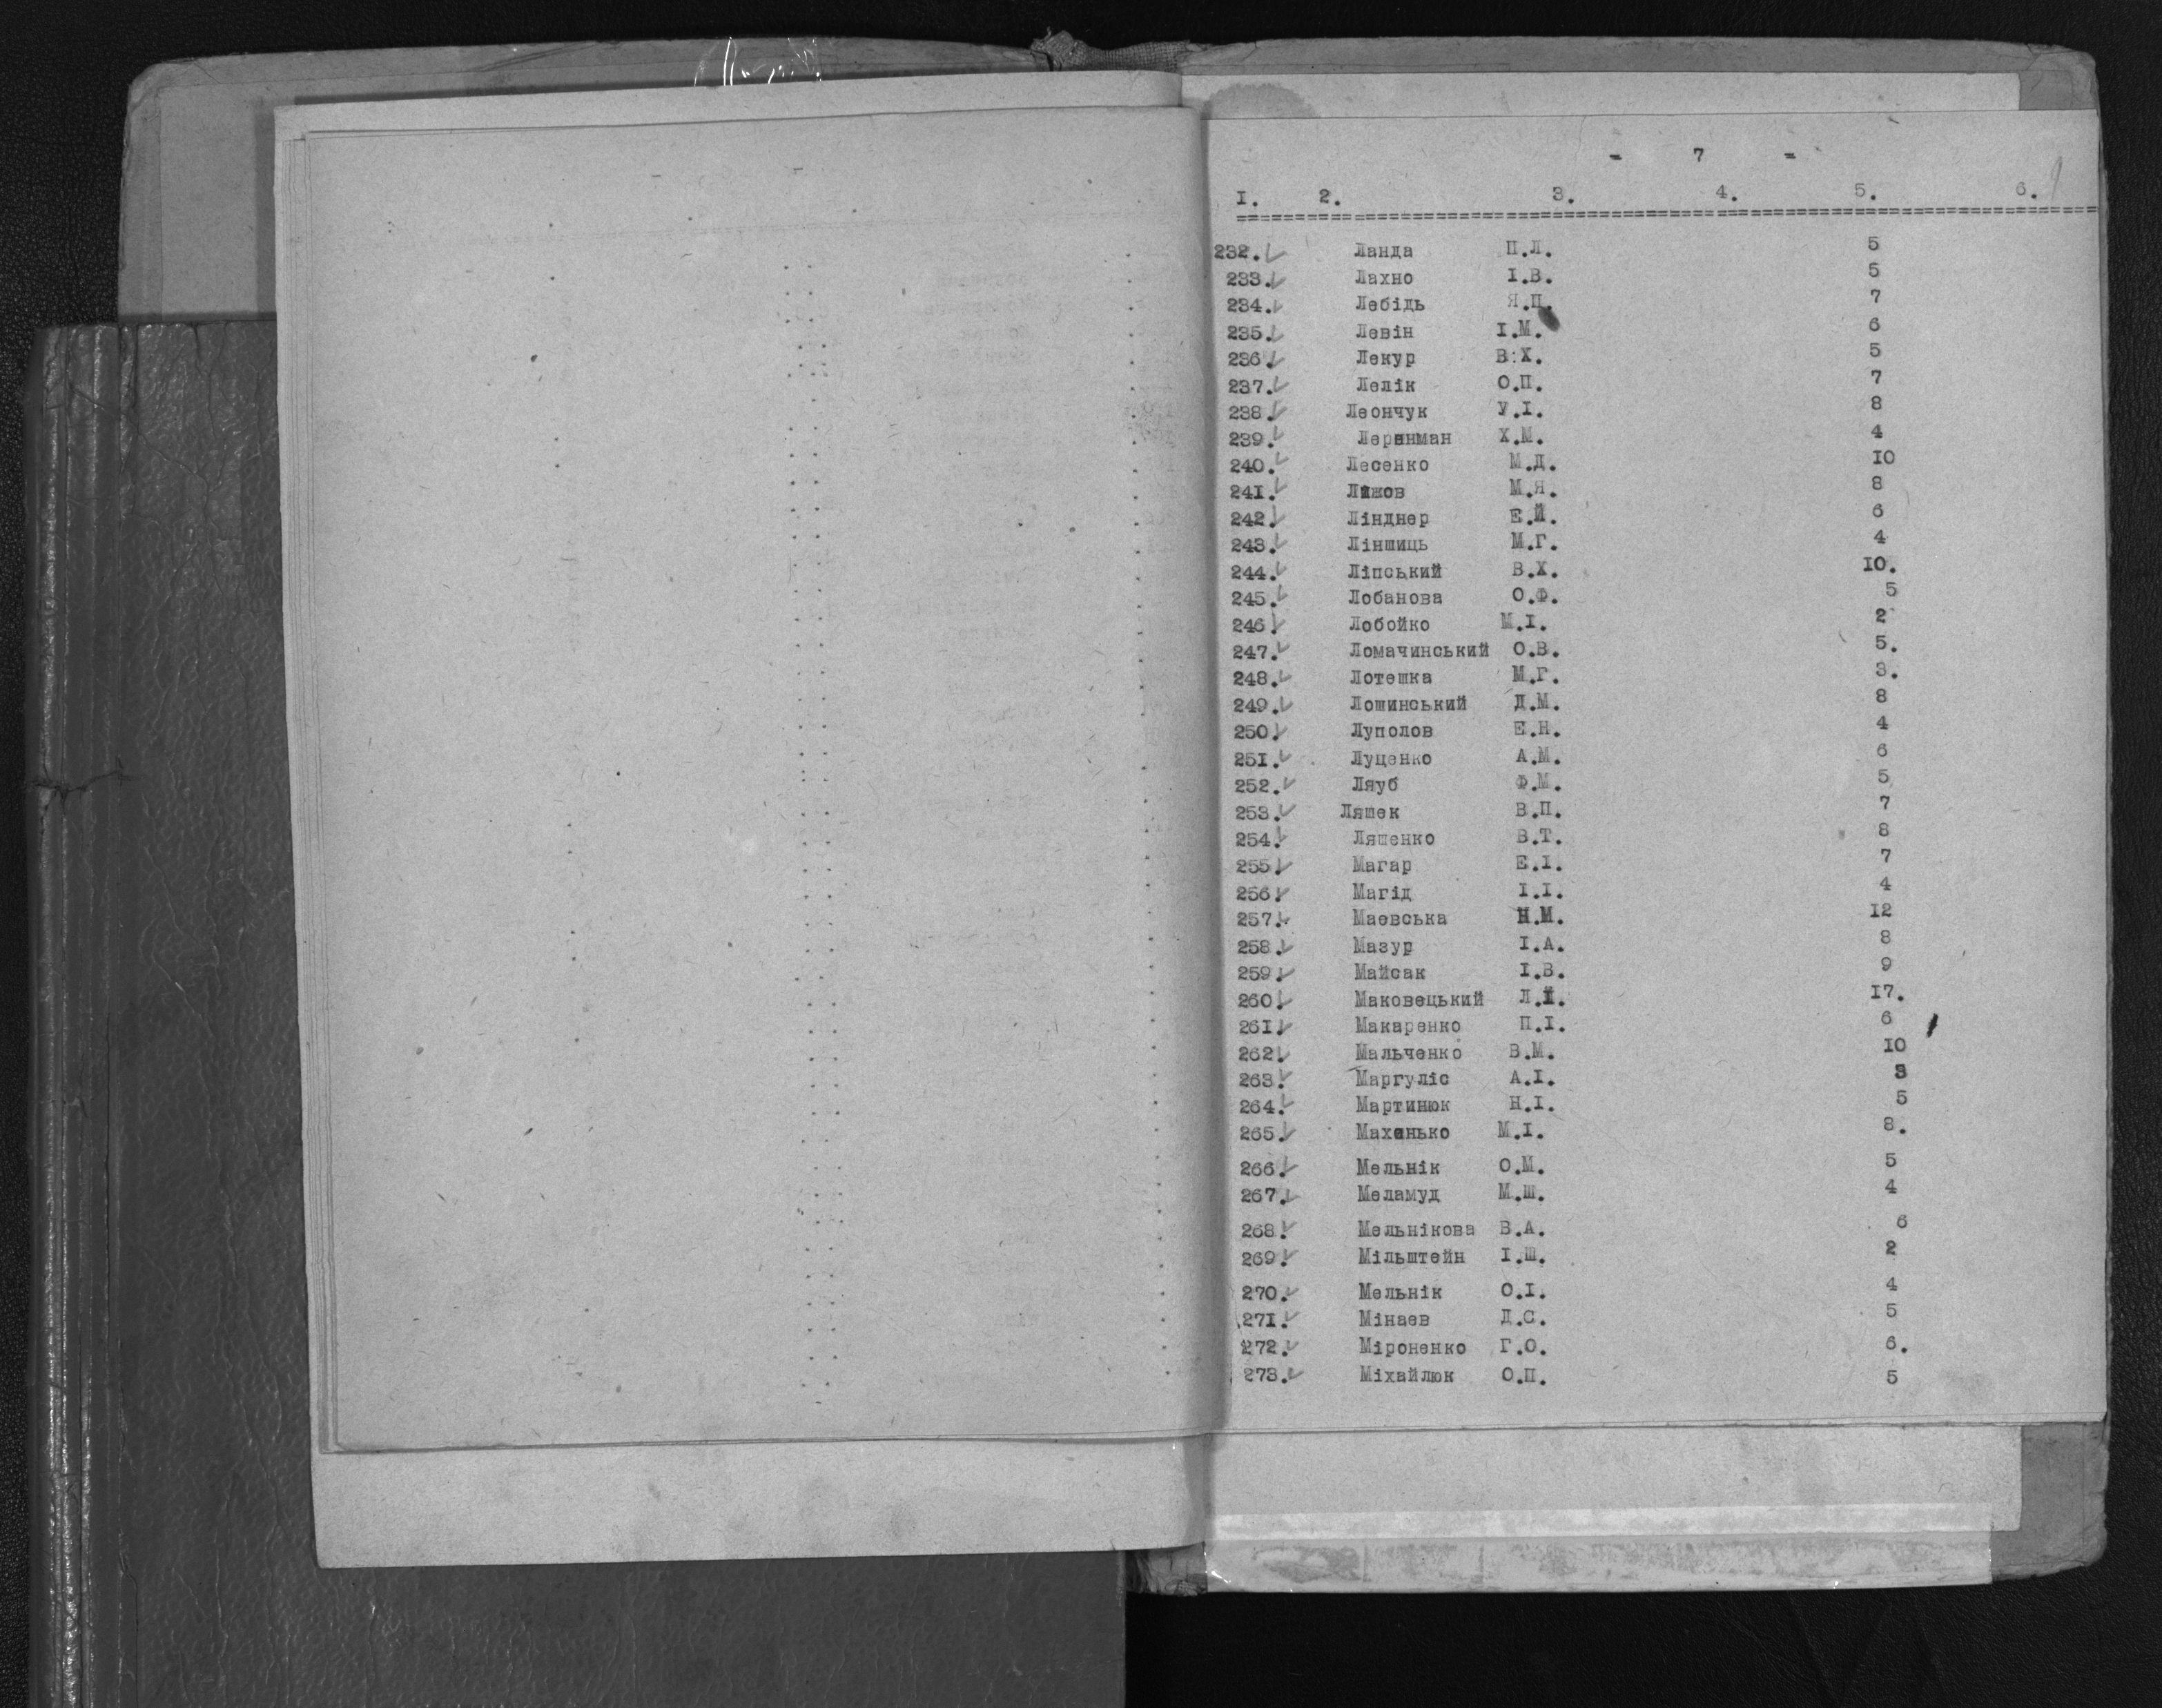 - 7 -
1. 2. 3. 4. 5. 6.
232. Ланда П.Л. 5
233. Лахно І.В. 5
234. Лебідь Я.П. 7
235. Левін І.М. 6
236. Лекур В.Х. 5
237. Лелік О.П. 7
238. Леончук У.І. 8
239. Леренман Х.М. 4
240. Лесенко М.Д. 10
241. М.Я. 8
242. Лінднер Е.Й. 6
243. Ліншиць М.Г. 4
244. Ліпський В.Х. 10.
245. Лобанова О.Ф. 5
246. Лобойко М.І. 2
247. Ломачинський О.В. 5.
248. Лотешка М.Г. 3.
249. Лошинський Д.М. 8
250. Луполов Е.Н. 4
251. Луценко А.М. 6
252. Ляуб Ф.М. 5
253. Ляшек В.П. 7
254. Ляшенко В.Т. 8
255. Магар Е.І. 7
256. Магід І.І. 4
257. Маевська Н.М. 12
258. Мазур І.А. 8
259. Майсак І.В. 9
260. Маковецький Л.Й. 17.
261. Макаренко П.І. 6
262. Мальченко В.М. 10
263. Маргуліс А.І. 3
264. Мартинюк Н.І. 5
265. Махенько М.І. 8.
266. Мельнік О.М. 5
267. Меламуд М.Ш. 4
268. Мельнікова В.А. 6
269. Мільштейн І.Ш. 2
270. Мельнік О.І. 4
271. Мінаев Д.С. 5
272. Міроненко Г.О. 6.
273. Міхайлюк О.П. 5